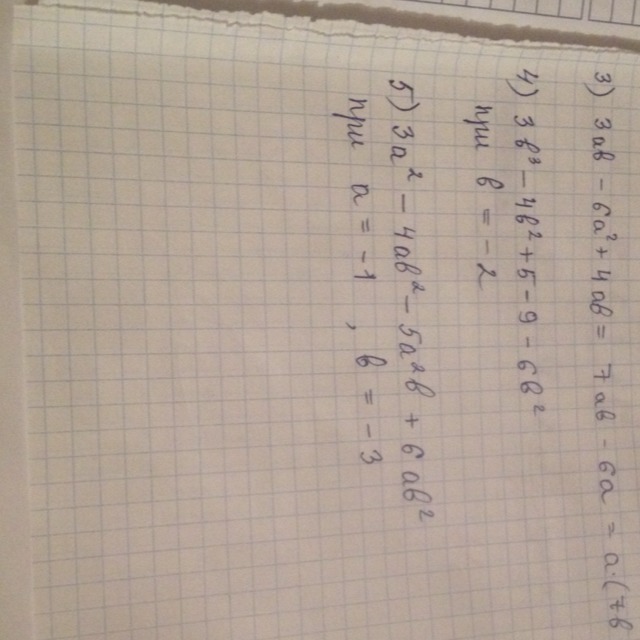 3) 3ab - 6a² + 4ab = 7ab - 6a = a(7b
4) 3b³ - 4b² + 5 - 9 - 6b²
при b = -2
5) 3a² - 4ab² - 5a²b + 6ab²
при a = -1, b = -3